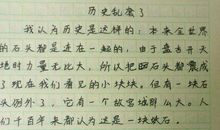 历史乱套了
我认为历史是这样的：本来全世界
的石头都是连在一起的，由于盘古开天
地时力量无比大，所以把石头都震成
了现在我们看见的小块块，但有一块石
头例外，它有一个故宫城那么大。人
们千百年来都认为这是一块陨石。